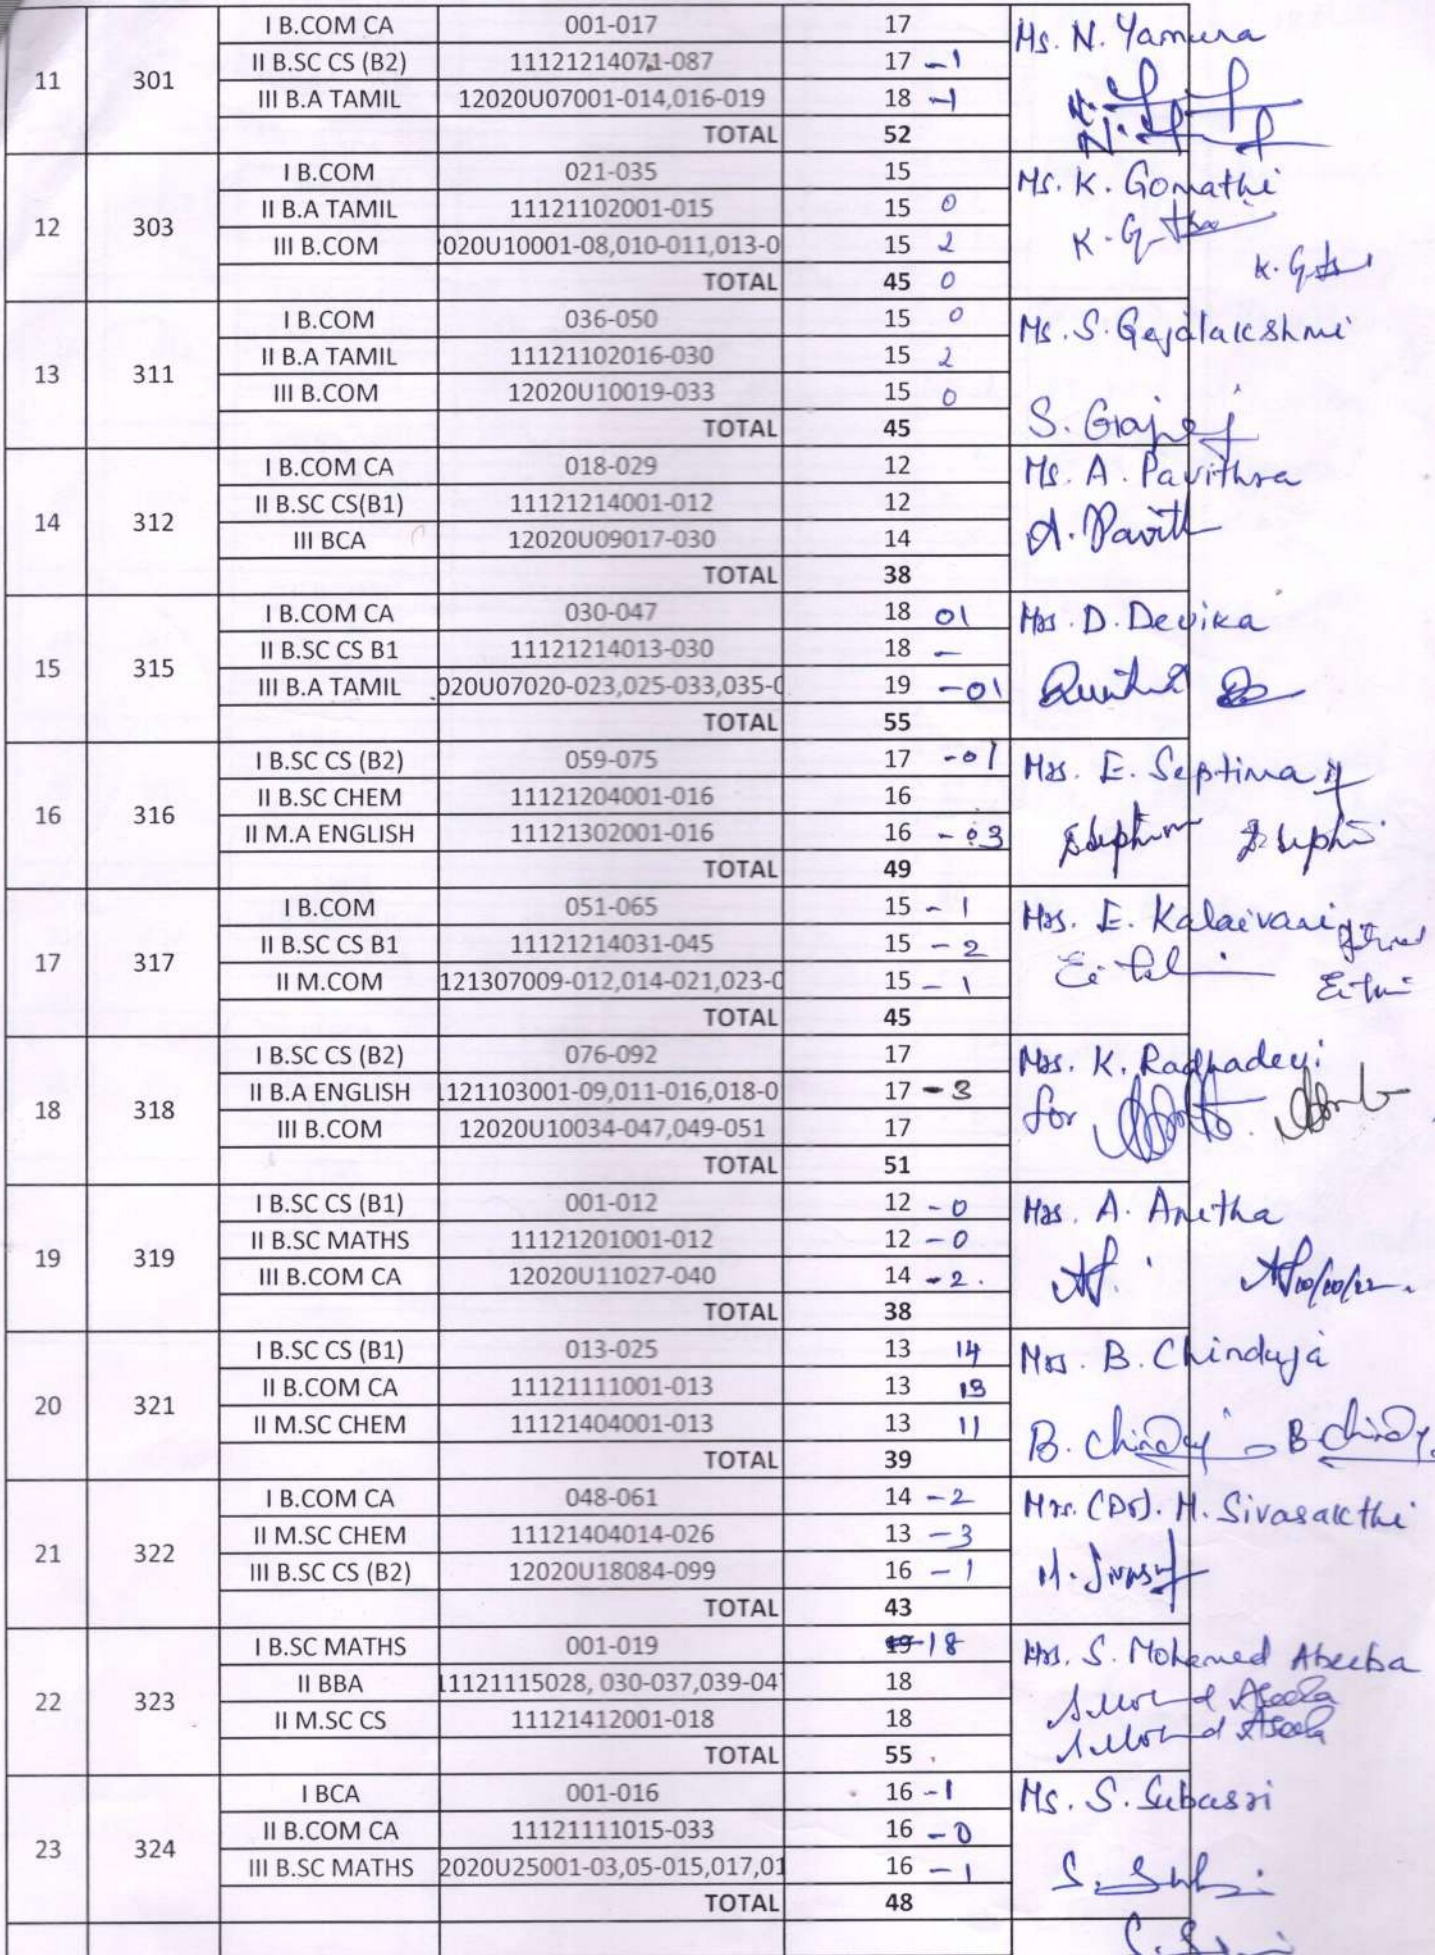 I B.COM CA 001-017 17 Ms. N. Yamuna
11 301 II B.SC CS (B2) 11121214071-087 17 -1
III B.A TAMIL 12020U07001-014,016-019 18 -1
TOTAL 52
I B.COM 021-035 15 Ms. K. Gomathi
12 303 II B.A TAMIL 11121102001-015 15 0
III B.COM 2020U10001-08,010-011,013-0 15 2
TOTAL 45 0
I B.COM 036-050 15 0 Ms. S. Gajalakshmi
13 311 II B.A TAMIL 11121102016-030 15 2
III B.COM 12020U10019-033 15 0
TOTAL 45
I B.COM CA 018-029 12 Ms. A. Pavithra
14 312 II B.SC CS(B1) 11121214001-012 12
III BCA 12020U09017-030 14 A. Pavith
TOTAL 38
I B.COM CA 030-047 18 01 Mrs. D. Devika
15 315 II B.SC CS B1 11121214013-030 18 -
III B.A TAMIL 020U07020-023,025-033,035-0 19 -01
TOTAL 55
I B.SC CS (B2) 059-075 17 -01 Mrs. E. Septima
16 316 II B.SC CHEM 11121204001-016 16
II M.A ENGLISH 11121302001-016 16 -03
TOTAL 49
I B.COM 051-065 15 -1 Mrs. E. Kalaivani
17 317 II B.SC CS B1 11121214031-045 15 -2
II M.COM 121307009-012,014-021,023-0 15 -1
TOTAL 45
I B.SC CS (B2) 076-092 17 Mrs. K. Radhadevi
18 318 II B.A ENGLISH 1121103001-09,011-016,018-0 17 -3 for
III B.COM 12020U10034-047,049-051 17
TOTAL 51
I B.SC CS (B1) 001-012 12 -0 Mrs. A. Anitha
19 319 II B.SC MATHS 11121201001-012 12 -0
III B.COM CA 12020U11027-040 14 -2. 10/10/22.
TOTAL 38
I B.SC CS (B1) 013-025 13 14 Mrs. B. Chinduja
20 321 II B.COM CA 11121111001-013 13 13
II M.SC CHEM 11121404001-013 13 11
TOTAL 39
I B.COM CA 048-061 14 -2 Mrs. (Dr). M. Sivasakthi
21 322 II M.SC CHEM 11121404014-026 13 -3
III B.SC CS (B2) 12020U18084-099 16 -1
TOTAL 43
I B.SC MATHS 001-019 19 18 Mrs. S. Mohamed Abeeba
22 323 II BBA 11121115028, 030-037,039-04 18
II M.SC CS 11121412001-018 18
TOTAL 55
I BCA 001-016 16 -1 Ms. S. Subasri
23 324 II B.COM CA 11121111015-033 16 -0
III B.SC MATHS 2020U25001-03,05-015,017,01 16 -1
TOTAL 48